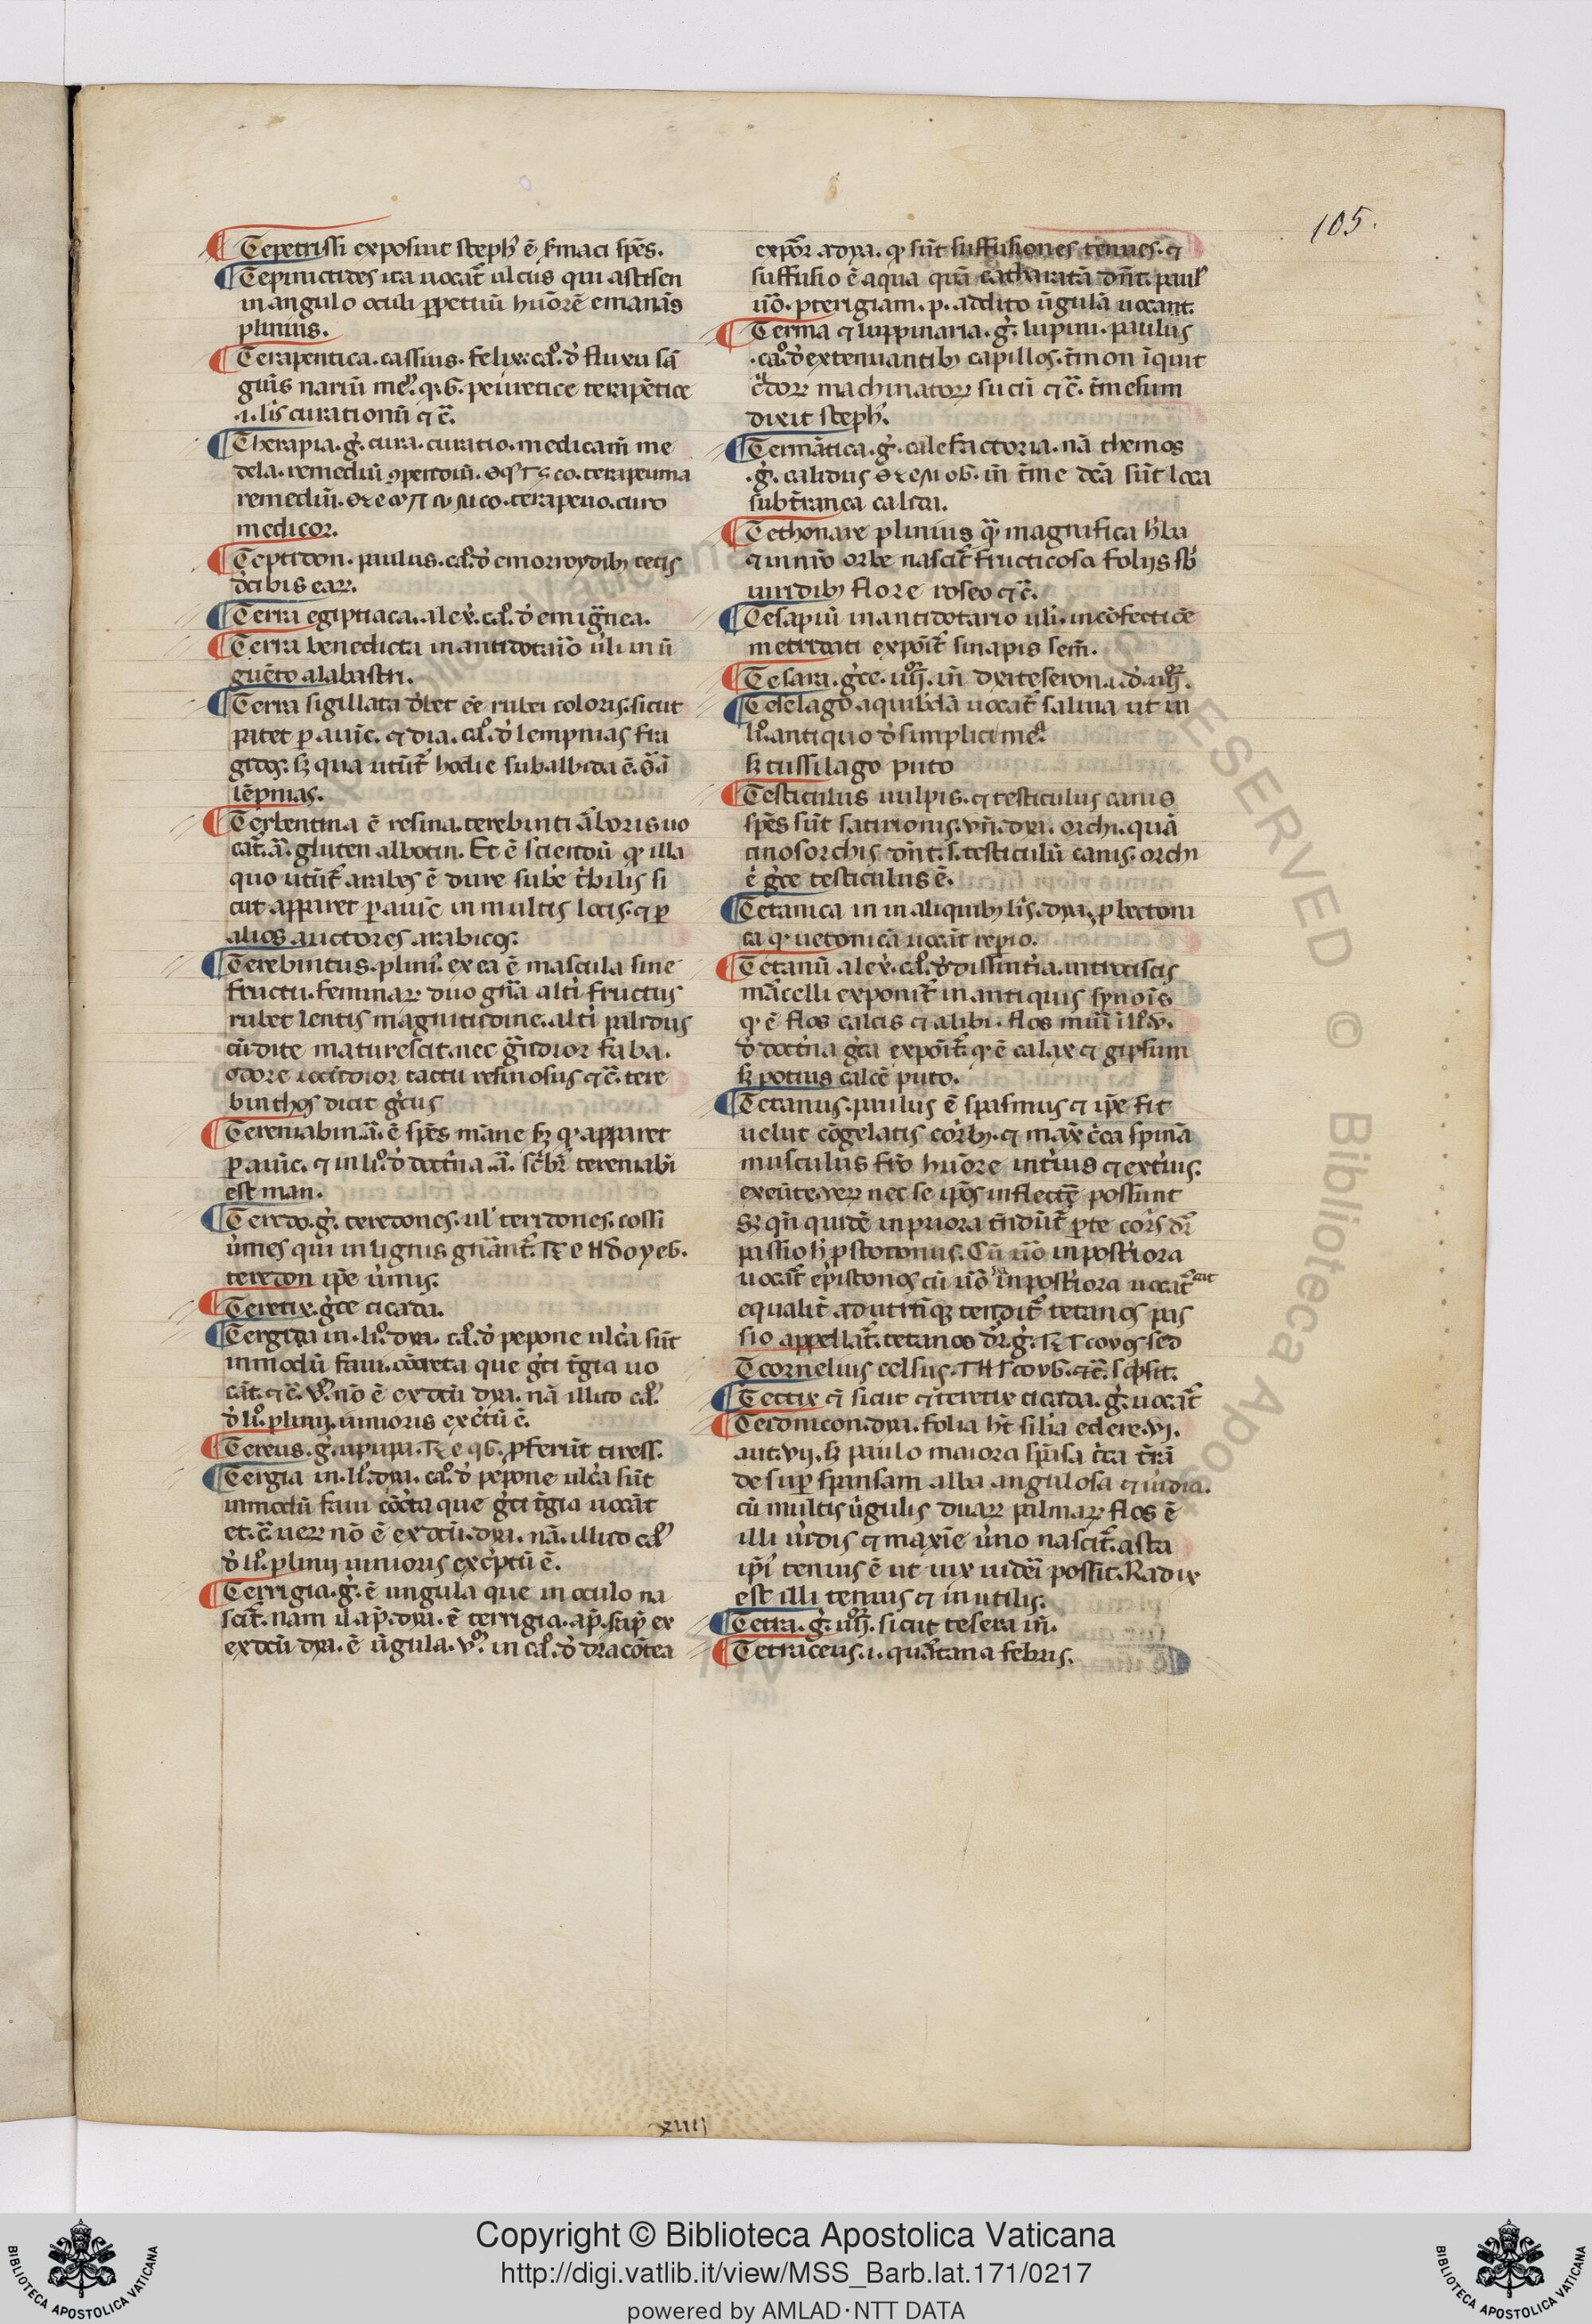 105.
¶ Tepetrissi exposuit steph' ē ẜmaci spēs.
¶ Tepinictides ita uocāt ulcus qui astisen
in angulo oculi ꝑpetuū hūorē emanās
plinius.
¶ Terapentica. cassius. felix. ca͛. đ fluxu sā
guīs nariū me͛. q̄. 6. peiuretice terapētice
.i. lis curationū ⁊ c̄.
¶ Therapia. g̊. cura. curatio. medicam̄ me
dela. remediū ꝯpendiū. terapeuma
remediū. terapeuo. curo
medicor.
¶ Teptidon. paulus. ca͛. đ emorroydibꝫ cecis
đcibis eaꝝ.
¶ Terra egiptiaca. alex̄. ca͛. đ emigͣnea.
¶ Terra benedicta in antidotaīo ūli in ū
guēto alabastri.
¶ Terra sigillata đbet eē rubei coloris. sicut
patet ꝑ auic̄. ⁊ dia. ca͛. đ lempnias fra
gidos. sꝫ qua utūt̄ hodie subalbida ē. s̄. ā
lēpnias.
¶ Terbentina ē resina. terebinti āboris uo
cāt. ā. gluten albotin. Et ē sciendū ꝙ illa
quo utūt̄ arabes ē dure sube t̄bilis si
cut apparet ꝑ auic̄ in multis locis. ⁊ ꝑ
alios auctores arabicos.
¶ Terebintus. plini͛. ex ea ē mascula sine
fructu. feminaꝝ duo gn̄a alti fructus
rubet lentis magnitudine. alti palidus
cū dite maturescit. nec gͣndior faba.
odore iocūdior tactu resinosus ⁊ c̄. tere
binthos dicit gc̄us
¶ Tereniabin. ā. ē spēs māne sꝫ ꝙ apparet
ꝑ auic̄. ⁊ in li͛. đ doctīna. ā. sc̄bi͛ tereniabī
est man.
¶ Teredo. g̊. teredones. ul' teridones. cossi
ūmes qui in lignis gnān̄t. ΤΕΡΗδογεϭ.
teredon ip̄e ūmis.
¶ Teretix. gc̄e cicada.
¶ Tergida in. li͛. dya. ca͛. đ pepone ulc̄a sūt
in modū faui. cōcreta que gc̄i t̄gia uo
cāt. ⁊ c̄. v͛. nō ē ex dictū dya. nā illico ca͛.
đ li͛. plinij iunioris exc̄tū ē.
¶ Tereus. g̊. upupa. ꝓferūt tiress̄.
¶ Tergia in. li͛. dya. ca͛. đ pepone ulc̄a sūt
in modū faui cōc̄ta que gc̄i t̄gia uocāt
et. c̄. ueꝝ nō ē ex dictū. dya. nā. illico ca͛
đ li͛. plinij iunioris exc̄ptū ē.
¶ Terrigia. g̊. ē ungula que in oculo na
scit̄. nam ilap̄. dya. ē terrigia. ap̄. scip̄ ex
ex dictū dya. ē ūgula. v͛. in ca͛. đ dracōtea
expōr adya. ꝙ sūt suffusiones tenues. ⁊
suffusio ē aqua quā catharatā dn̄t. paul'
ūo. pterigiam. p. addito ūgulā uocant.
¶ Terma ⁊ luppinaria. g̊. lupini. paulus
.ca͛. đ extenuantibꝫ capillos. t̄mon īquit
c̄doꝝ machinatoꝝ sucū ⁊ c̄. t̄mesum
dixit steph'.
¶ Termātica. g̊. calefactoria. nā themos
.g̊. calidus in̄ t̄me dc̄ā sūt loca
subt̄ranea calida.
¶ Tethonare plinius qͣ magnifica h'ba
⁊ in nr̄o orbe nascit̄ fructicosa folijs sb̄
uiridibꝫ flore roseo ⁊ c̄.
¶ Tesapiū in antidotario ūli. in cōfectiōe
metridati expōit̄ sinapis sem̄.
¶ Tesara. gc̄e. iiijo͛. in̄ dyateseron. i. đ. iiijo͛.
¶ Teselago aquibdā uocāt̄ saluia ut in
li͛. antiquo đ simplici me͛.
sꝫ tussilago puto
¶ Testiculus uulpis. ⁊ testiculus canis
spēs sūt satirionis. vn̄. dya. orchi. quā
cinosorchis dn̄t. s. testiculū canis. orchi
ē gc̄e testiculus ē.
¶ Tetanica in in aliquibꝫ lis. dya. ꝓ bectoni
ca ꝙ uetonica uocāt reꝑio.
¶ Tetanū alex̄. ca͛. đ dissint̄ia. introciscis
mācelli exponit̄ in antiquis synoīs
ꝙ ē flos calcis ⁊ alibi. flos muī
đ doctīna gc̄a expōit̄. ꝙ ē calax ⁊ gipsum
sꝫ potius calcē puto.
¶ Tetanus. paulus ē spasmus ⁊ ip̄e fit
uelut cōgelatis cor̄bꝫ. ⁊ max̄ c̄ca spinā
musculus fr̄o hūore int̄ius ⁊ ext̄ius.
exeūte. ueꝝ nec se ip̄os inflectē possunt
sꝫ qn̄ quidē in priora tn̄dūt̄ ꝑte cor̄s dr̄
passio h̄ ꝑstotonus. Cū ūo in post̄iora
uocāt̄ epistonos cū ūo in post̄iora uocāt̄ aut
equalit̄ ad utrūqꝫ tendit̄ tetanos pas
sio appellat̄. tetanos dr̄. g̊. sed
¶ Cornelius celsus. ⁊ c̄. sc̄psit.
¶ Tettix ⁊ sicut ⁊ teretix cicada. g̊. uocāt̄
¶ Teronicon. dya. folia ht̄ silia edere. vj.
aut. vij. sꝫ paulo maiora sp̄sa c̄ca t̄rā
desuꝑ spansam alba angulosa ⁊ ūidia.
cū multis ūgulis duaꝝ palmaꝝ flos ē
illi ūidis ⁊ maxīe ūno nascit̄. asta
ip̄i tenuis ē ut uix uidēi possit. Radix
est illi tenuis ⁊ inutilis.
¶ Tetra. g̊. iiijo͛. sicut tesera in̄.
¶ Tetraceus. i. quātana febris.
xiiij
Copyright © Biblioteca Apostolica Vaticana
http://digi.vatlib.it/view/MSS_Barb.lat.171/0217
powered by AMLAD·NTT DATA